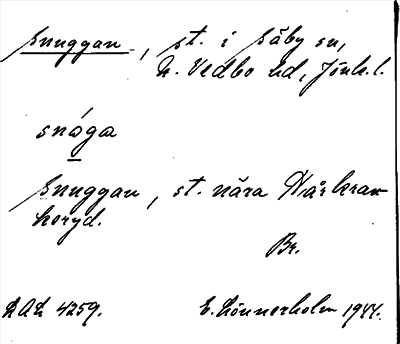 Snuggan, st. i Säby sn,
N. Vedbo hd, Jönk. l.
snóga
Snuggan, st. nära
horyd.
Br.
LAL 4259. E. Lönnerholm 1944.